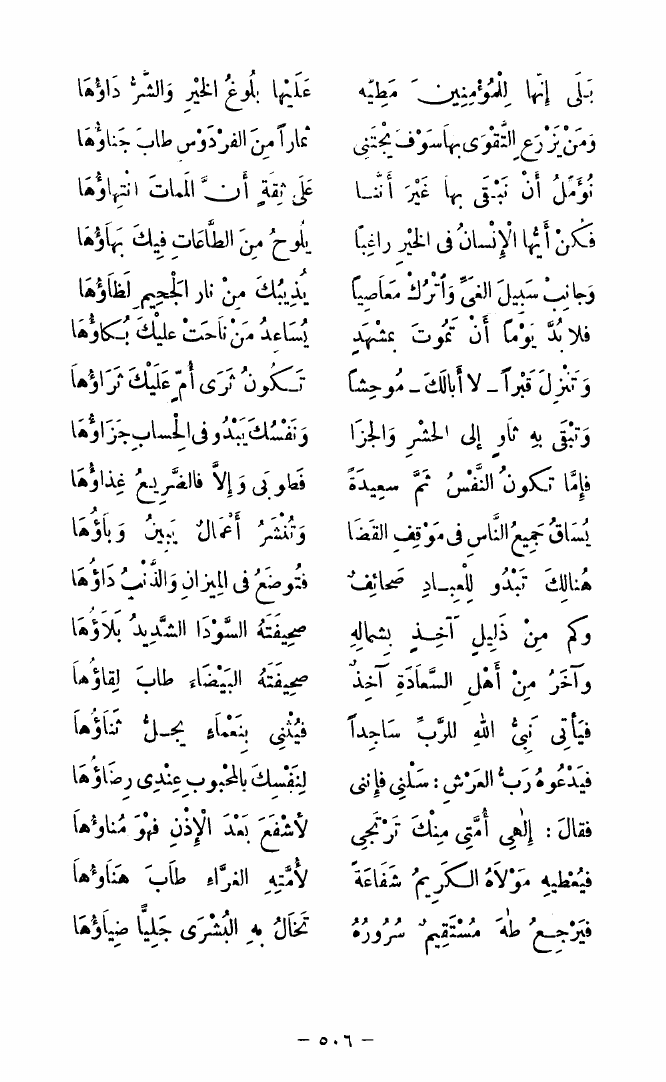 بَلَى إِنَّها لِلْمُؤْمِنِينَ مَطِيَّه عَلَيْها بُلُوغُ الخَيْرِ وَالشَّرُّ دَاؤُهَا
وَمَنْ يَزْرَعِ التَّقْوَى بها سَوْفَ يَجْتَنِي ثماراً مِنَ الفِرْدَوْسِ طابَ جَناؤُهَا
نُؤَمِّلُ أَنْ نَبْقَى بها غَيْرَ أَنَّنا عَلَى ثِقَةٍ أَنَّ المَماتَ انْتِهاؤُهَا
فَكُنْ أَيُّها الْإِنْسانُ فى الخَيْرِ راغِبًا يلُوحُ مِنَ الطَّاعَاتِ فِيكَ بَهَاؤُهَا
وَجانِبْ سَبِيلَ الغَىِّ وَاتْرُكْ مَعَاصِيًا يُذِيبُكَ مِنْ نارِ الجَحِيمِ لَظَاؤُهَا
فلا بُدَّ يَوْمًا أَنْ تَمُوتَ بمشْهَدٍ يُسَاعِدُ مَنْ نَاحَتْ عليْكَ بُكاؤُهَا
وَتَنْزِلَ قَبْراً - لا أَبَالَكَ - مُوحِشًا تَكُونُ ثَرَى أُمٍّ عَلَيْكَ ثَرَاؤُهَا
وَتَبْقَى بِهِ ثاوٍ إلى الحَشْرِ وَالجَزَا وَنَفْسُكَ يَبْدُو فى الحِسابِ جَزَاؤُهَا
فإِمَّا تكونُ النَّفْسُ ثَمَّ سعِيدَةً فَطوبَى وَإِلاَّ فالضَّرِيعُ غِذاؤُهَا
يُسَاقُ جَمِيعُ النَّاسِ فى مَوْقِفِ القَضَا وَتُنْشَرُ أَعْمَالٌ يَبِينُ وَبَاؤُهَا
هُنالِكَ تَبْدُو لِلْعِبادِ صَحائِفٌ فتُوضَعُ فى المِيزانِ وَالذَّنْبُ دَاؤُهَا
وكم مِنْ ذَلِيلٍ آخِذٍ بِشِمالِهِ صحِيفَتَهُ السَّوْدَا الشَّدِيدُ بَلاَؤُهَا
وآخَرُ مِنْ أَهْلِ السَّعَادَةِ آخِذٌ صحِيفَتَهُ البَيْضَاءَ طابَ لِقاؤُهَا
فيَأتِى نَبِىُّ اللهِ للرَّبِّ سَاجِداً فيُثْنِى بِنَعْمَاءٍ يجلُّ ثَنَاؤُهَا
فيَدْعُوهُ رَبُّ العَرْشِ : سَلْنِى فإِننى لِنَفْسِكَ بالمَحْبوبِ عِنْدِى رِضَاؤُهَا
فقالَ : إِلٰهِى أُمَّتِى مِنْكَ تَرْتَجِى لأَشْفَعَ بَعْدَ الْإِذْنِ فهْوَ مُناوءُهَا
فيُعْطِيهِ مَوْلاَهُ الكَرِيمُ شَفَاعَةً لأُمَّتِهِ الغرَّاءِ طابَ هَناوءُهَا
فيَرْجِعُ طٰهَ مُسْتَقِيمٌ سُرُورُهُ تَخالُ بِهِ البُشْرَى جَلِيًّا ضِياؤُهَا
- ٥٠٦ -